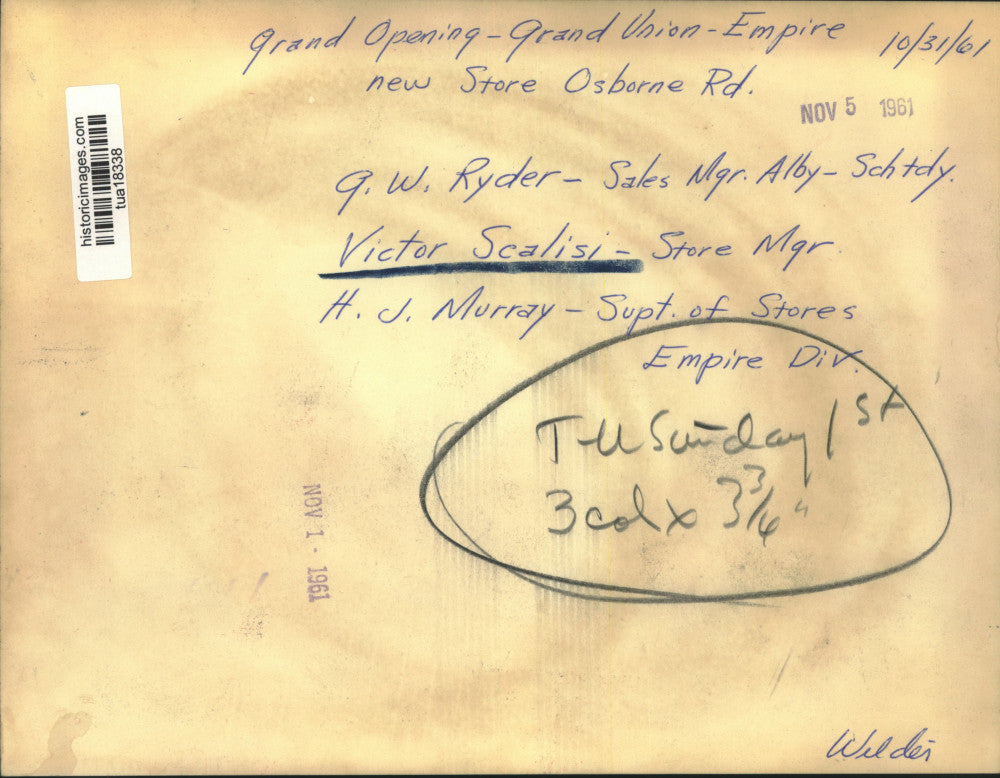 Grand Opening - Grand Union - Empire 10/31/61
new Store Osborne Rd.
NOV 5 1961
G. W. Ryder - Sales Mgr. Alby - Schtdy.
Victor Scalisi - Store Mgr.
H. J. Murray - Supt. of Stores
Empire Div.
T-U Sunday 1st
3 col x 3 3/16"
NOV 1 - 1961
historicimages.com
tua18338